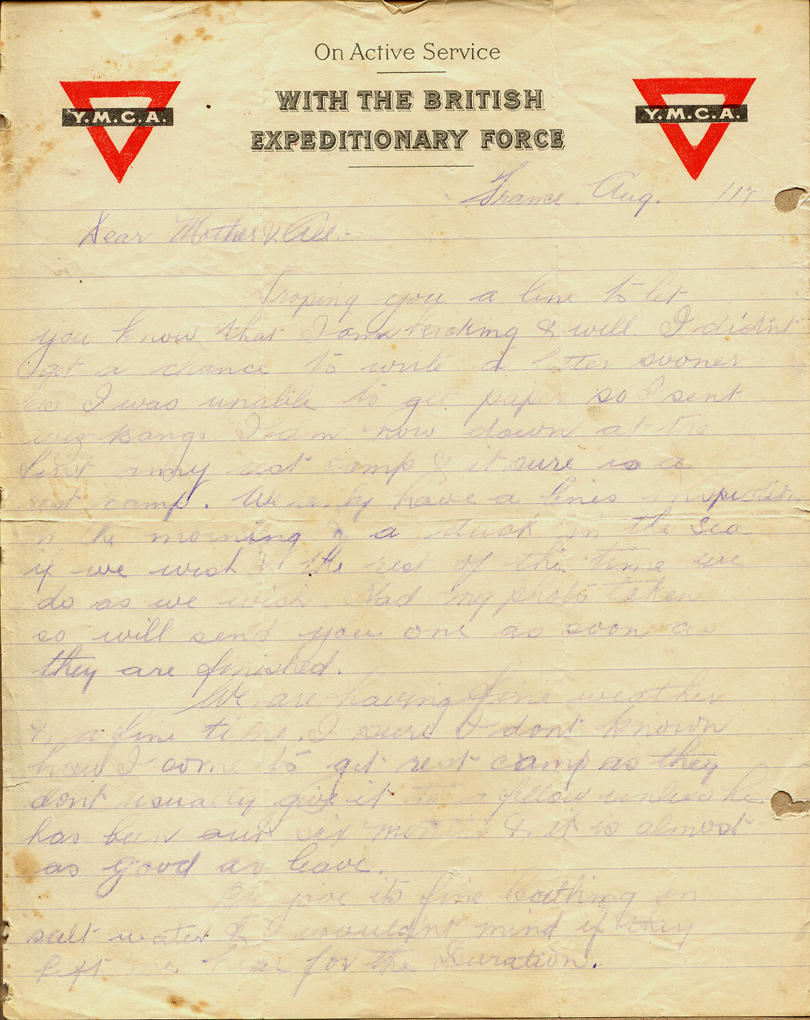 On Active Service
WITH THE BRITISH
EXPEDITIONARY FORCE
Y.M.C.A.
Y.M.C.A.
France, Aug.
Dear Mother & All:-
Droping you a line to let
you know that I am kicking & well. I didn't
get a chance to write a letter sooner
as I was unable to get paper so I sent
I am now down at the
first army rest camp & it sure is a
rest camp. We only have a lines inspection
in the morning & a duck in the sea
if we wish & the rest of the time we
do as we wish. Had my photo taken
so will send you one as soon as
they are finished.
We are having fine weather
& a fine time. I sure I dont known
how I come to get rest camp as they
dont usually give it to a fellow unless he
has been out six months & it is almost
as good as leave.
By jove its fine bathing in
salt water & I wouldn't mind if they
left me here for the Duration.